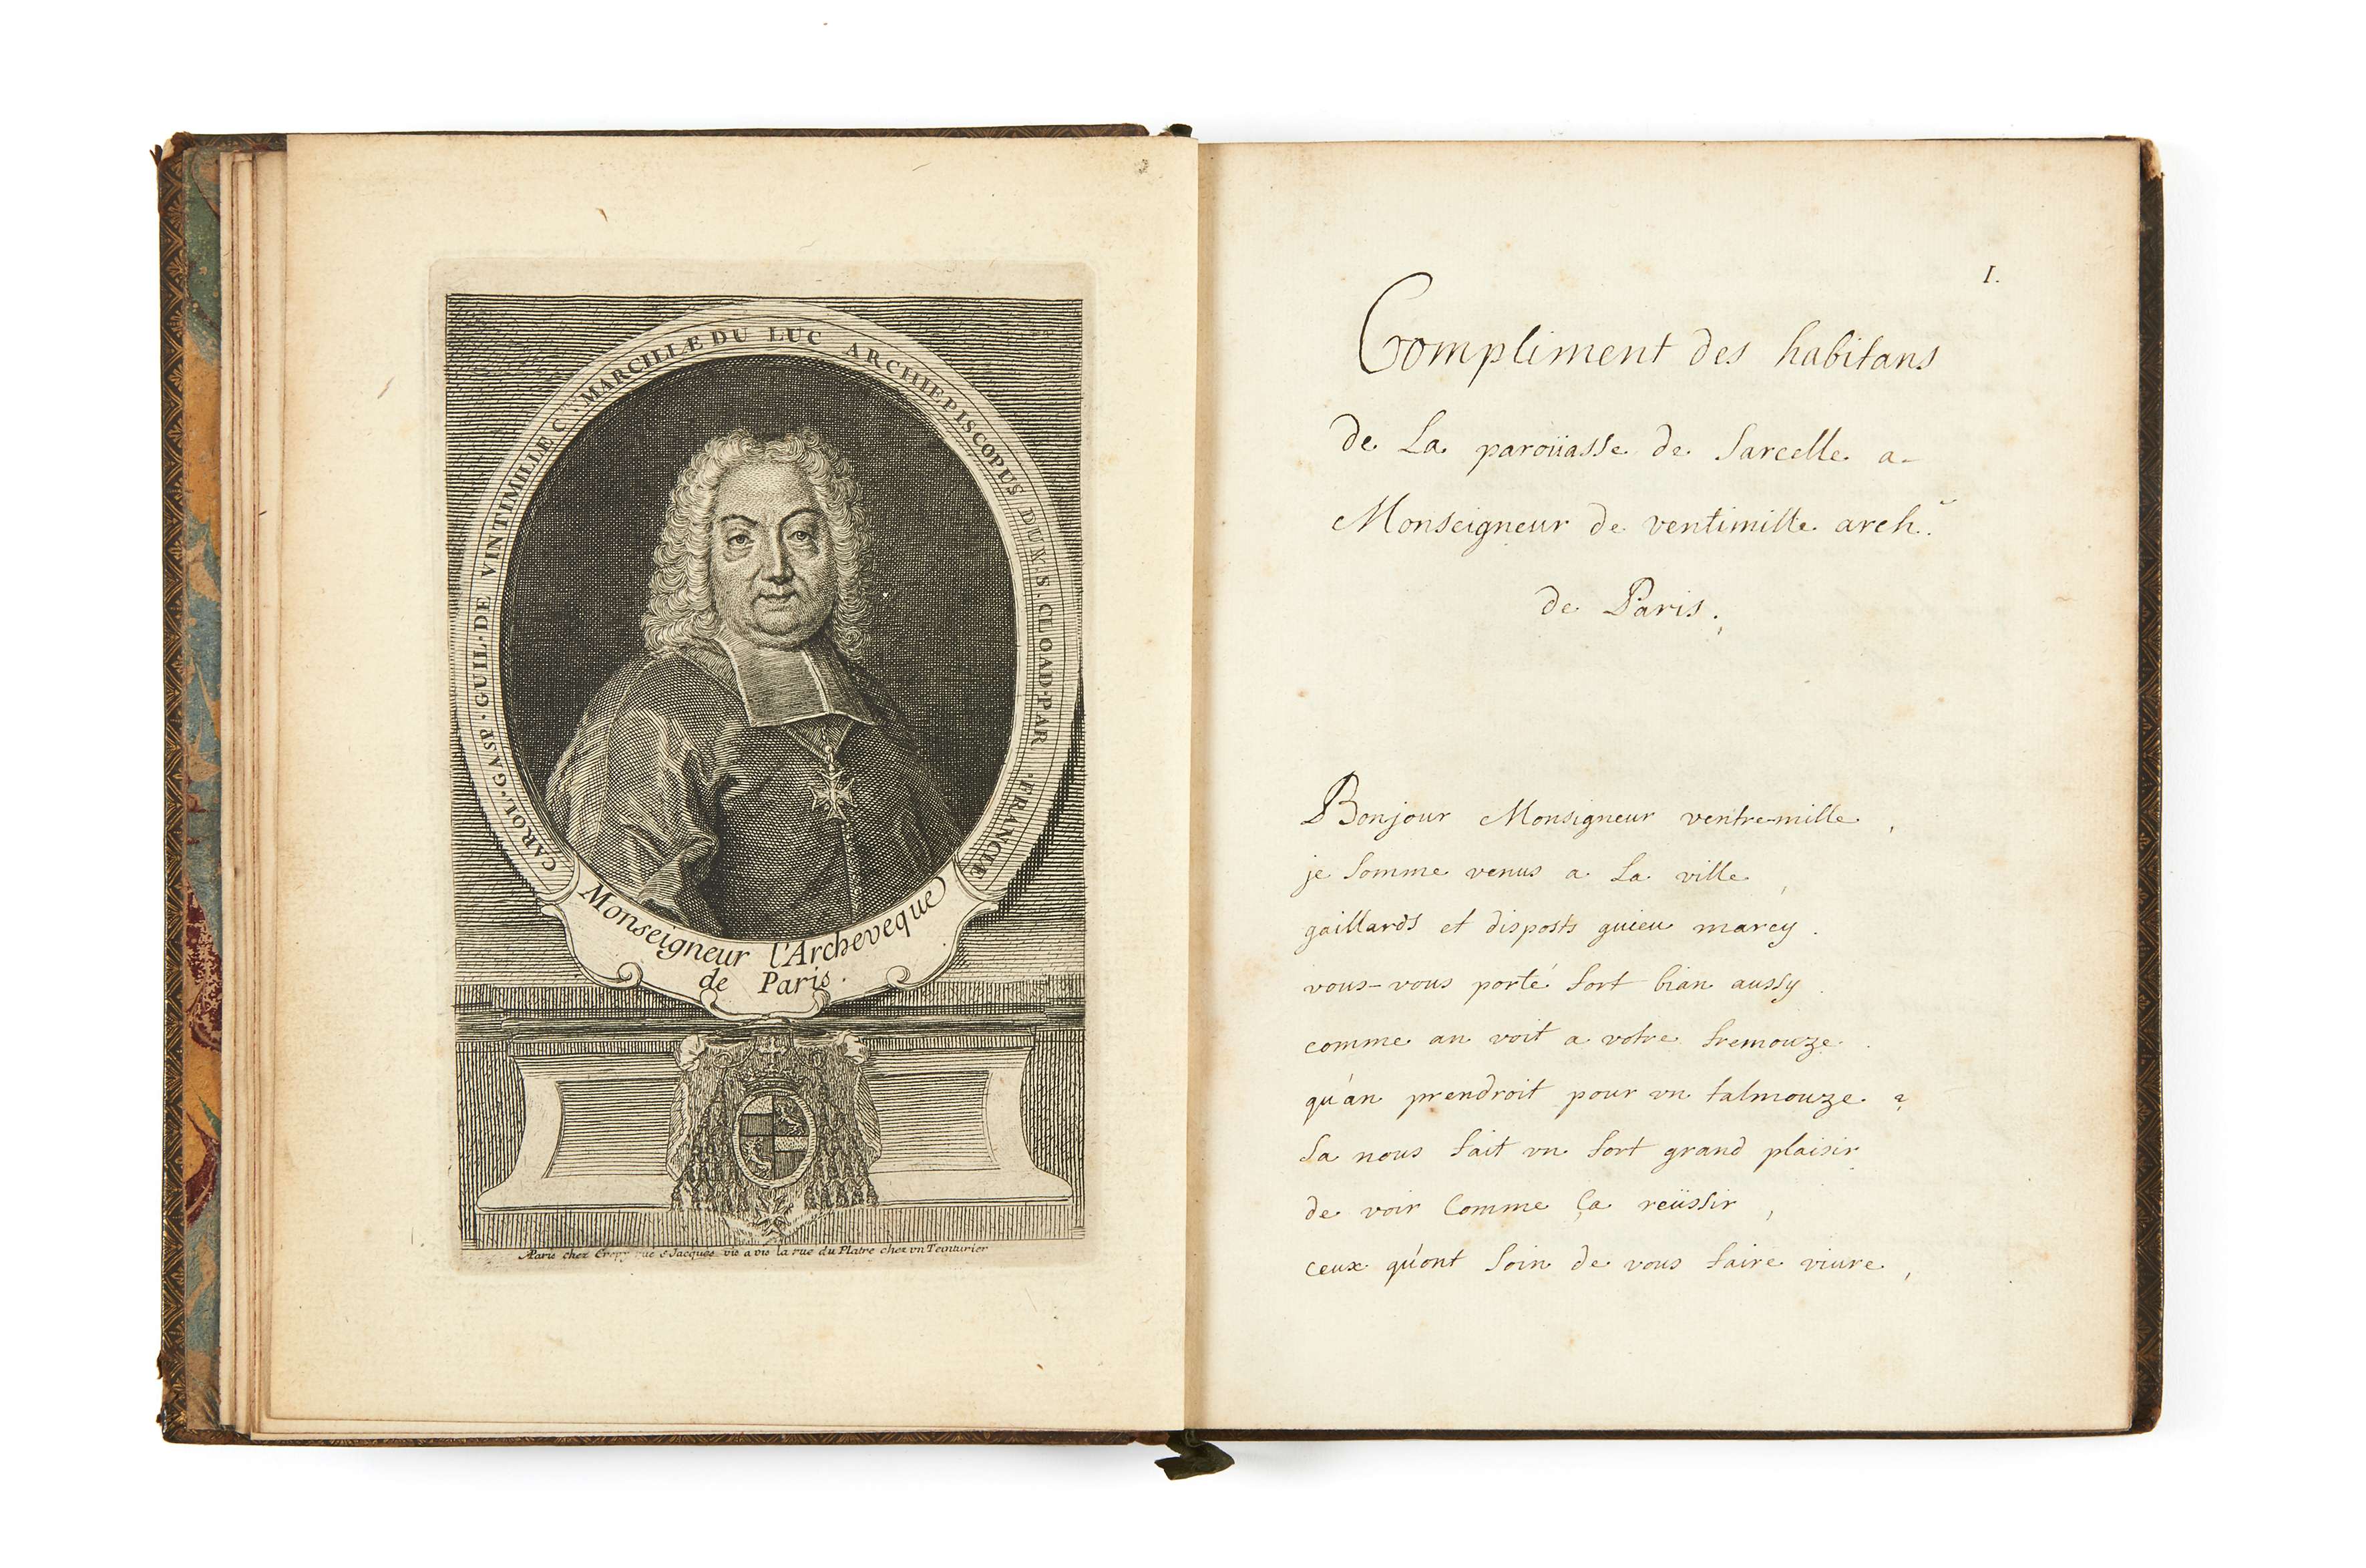 CAROL·GASP·GUIL·DE VINTIMILLE C·MARCILLIÆ DU LUC ARCHIEPISCOPUS DUX S. CLOAD·PAR FRANCIÆ
Monseigneur l'Archeveque
de Paris.
AParis chez Crepy rue S. Jacques vis a vis la rue du Platre chez vn Teinturier
I.
Compliment des habitans
de La paroüasse de Sarcelle a
Monseigneur de ventimille arch.
de Paris.
Bonjour Monsigneur ventre-mille,
je somme venus a La ville,
gaillards et disposts guieu marcy.
vous-vous porté fort bian aussy.
comme an voit a votre fremouze.
qu'an prendroit pour vn talmouze?
Sa nous fait vn fort grand plaisir
de voir comme ça reüssir,
ceux qu'ont soin de vous faire viure,